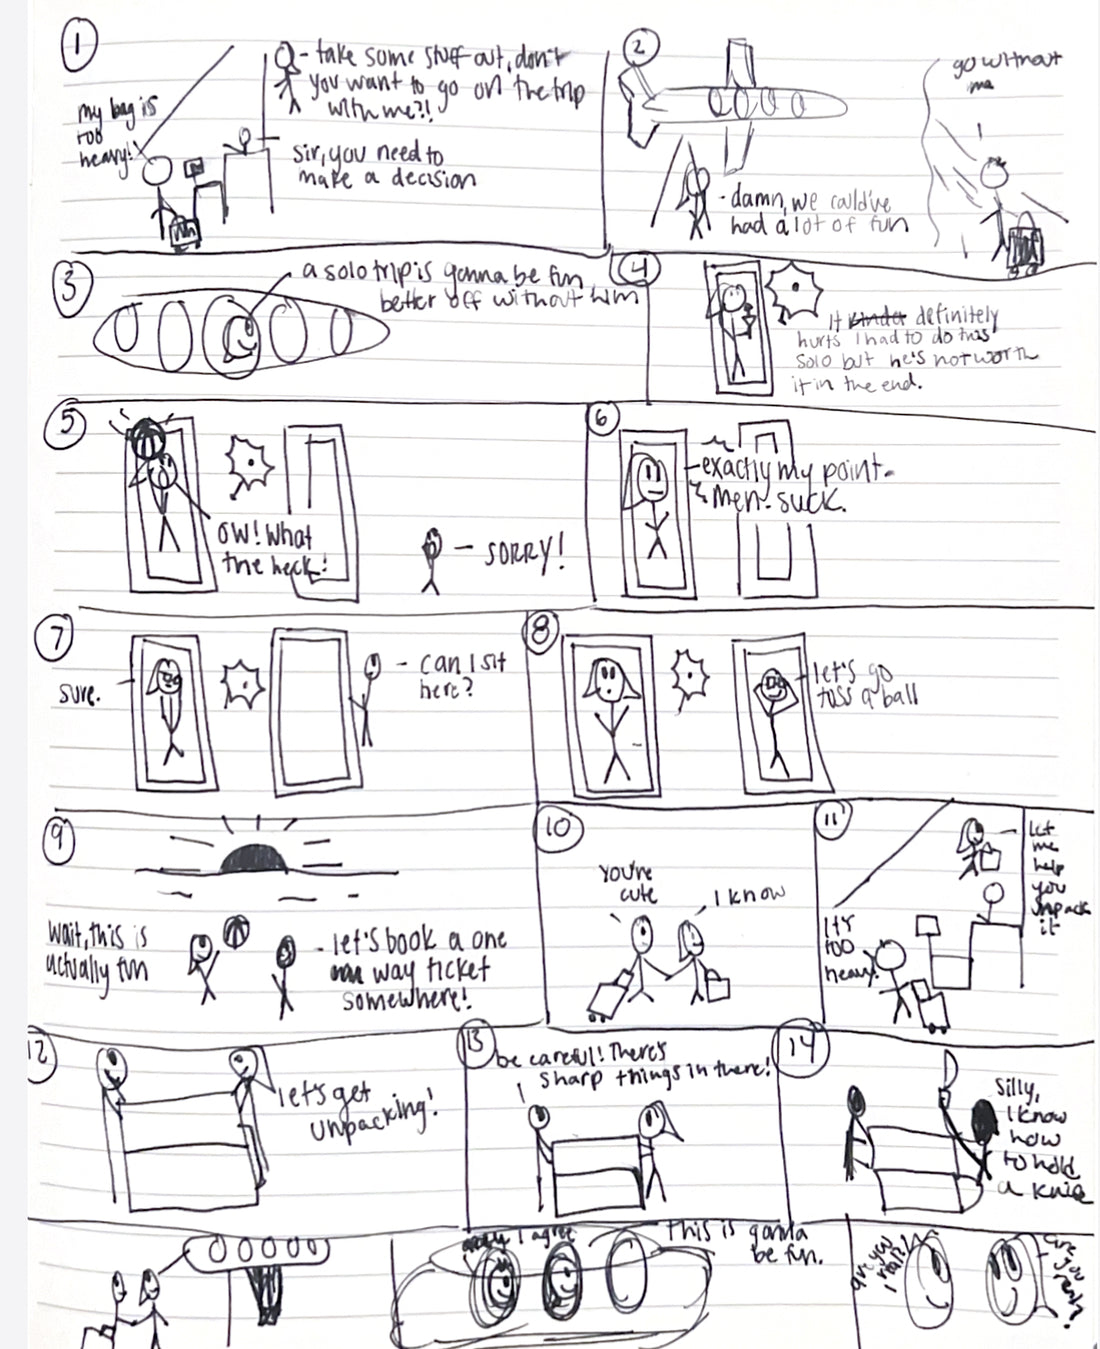 1
my bag is
too
heavy!
- take some stuff out, don't
you want to go on the trip
with me?!
sir, you need to
make a decision
2
- damn, we could've
had a lot of fun
go without
me
3
a solo trip is gonna be fun,
better off without him
4
It kinda definitely
hurts I had to do this
solo but he's not worth
it in the end.
5
OW! What
the heck!
- SORRY!
6
- exactly my point.
Men suck.
7
sure.
- can I sit
here?
8
let's go
toss a ball
9
wait, this is
actually fun
- let's book a one
way ticket
somewhere!
10
You're
cute
I know
11
It's
too
heavy!
- Let
me
help
you
unpack
it
12
let's get
unpacking!
13
be careful! There's
sharp things in there!
14
Silly,
I know
how
to hold
a knife
I agree
this is gonna
be fun.
are you
ready?
are
you
ready?